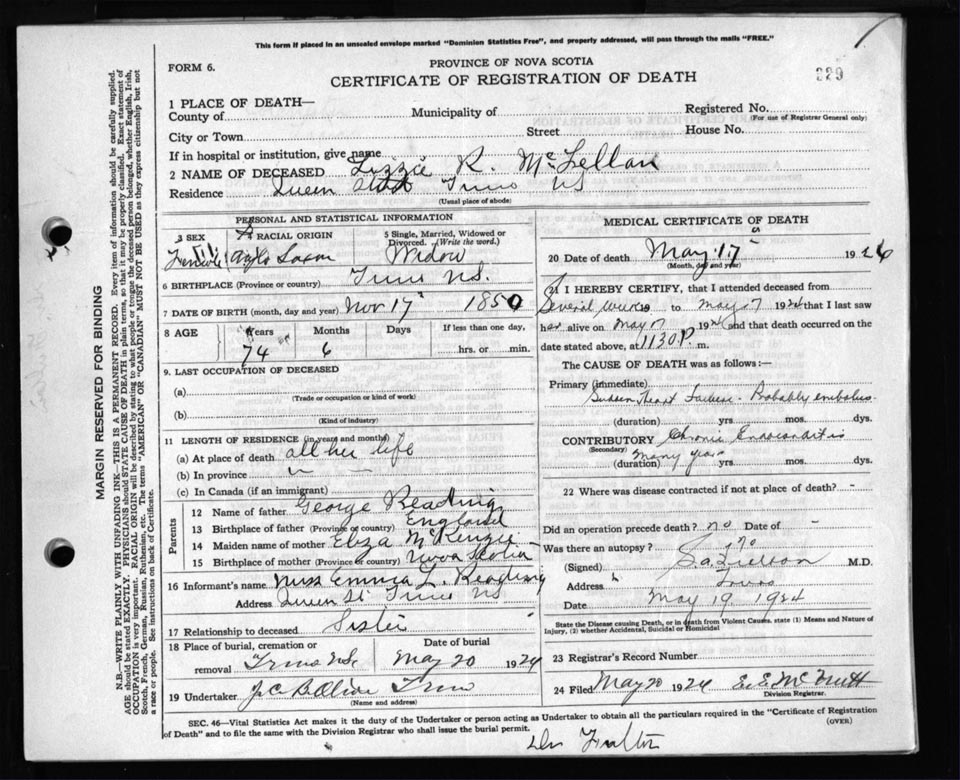 This form if placed in an unsealed envelope marked "Dominion Statistics Free", and properly addressed, will pass through the mails "FREE."
FORM 6.
PROVINCE OF NOVA SCOTIA
CERTIFICATE OF REGISTRATION OF DEATH
329
1 PLACE OF DEATH—
County of
Municipality of
Registered No.
(For use of Registrar General only)
City or Town
Street
House No.
If in hospital or institution, give name
2 NAME OF DECEASED Lizzie R. McLellan
Residence Queen Truro NS
(Usual place of abode)
PERSONAL AND STATISTICAL INFORMATION
3 SEX
4 RACIAL ORIGIN
5 Single, Married, Widowed or Divorced. (Write the word.)
Female Anglo Saxon Widow
6 BIRTHPLACE (Province or country) Truro N.S.
7 DATE OF BIRTH (month, day and year) Nov 17 1850
8 AGE Years Months Days If less than one day,
74 6 hrs. or min.
9. LAST OCCUPATION OF DECEASED
(a)
(Trade or occupation or kind of work)
(b)
(Kind of industry)
11 LENGTH OF RESIDENCE (in years and months)
(a) At place of death all her life
(b) In province " — —
(c) In Canada (if an immigrant)
Parents
12 Name of father George Reading
13 Birthplace of father (Province or country) England
14 Maiden name of mother Eliza McKenzie
15 Birthplace of mother (Province or country) Nova Scotia
16 Informant's name Miss Emma L. Reading
Address Queen St Truro NS
17 Relationship to deceased Sister
18 Place of burial, cremation or removal Truro N.S.
Date of burial May 20 1924
19 Undertaker Truro
(Name and address)
MEDICAL CERTIFICATE OF DEATH
20 Date of death May 17 192
(Month, day and year)
21 I HEREBY CERTIFY, that I attended deceased from
Several weeks to May 17 1924 that I last saw
her alive on May 17 192 and that death occurred on the
date stated above, at 1130 P. m.
The CAUSE OF DEATH was as follows:—
Primary (immediate)
Sudden Heart Failure - Probably embolus
(duration) yrs. mos. dys.
CONTRIBUTORY Chronic Endocarditis
(Secondary)
(duration) Many years yrs. mos. dys.
22 Where was disease contracted if not at place of death? -
Did an operation precede death? no Date of -
Was there an autopsy? no
(Signed) M.D.
Address Truro
Date May 19 1924
State the Disease causing Death, or in death from Violent Causes, state (1) Means and Nature of Injury, (2) whether Accidental, Suicidal or Homicidal
23 Registrar's Record Number
24 Filed May 20 1924
Division Registrar.
SEC. 46—Vital Statistics Act makes it the duty of the Undertaker or person acting as Undertaker to obtain all the particulars required in the "Certificate of Registration
of Death" and to file the same with the Division Registrar who shall issue the burial permit.
(OVER)
MARGIN RESERVED FOR BINDING
N.B.—WRITE PLAINLY WITH UNFADING INK—THIS IS A PERMANENT RECORD. Every item of information should be carefully supplied.
AGE should be stated EXACTLY. PHYSICIANS should STATE CAUSE OF DEATH in plain terms, so that it may be properly classified. Exact statement of
OCCUPATION is very important. RACIAL ORIGIN will be described by stating to what people or tongue the deceased person belonged, whether English, Irish,
Scotch, French, German, Russian, Ruthenian, etc. The terms "AMERICAN" or "CANADIAN" MUST NOT BE USED as they express citizenship but not
a race or people. See instructions on back of Certificate.